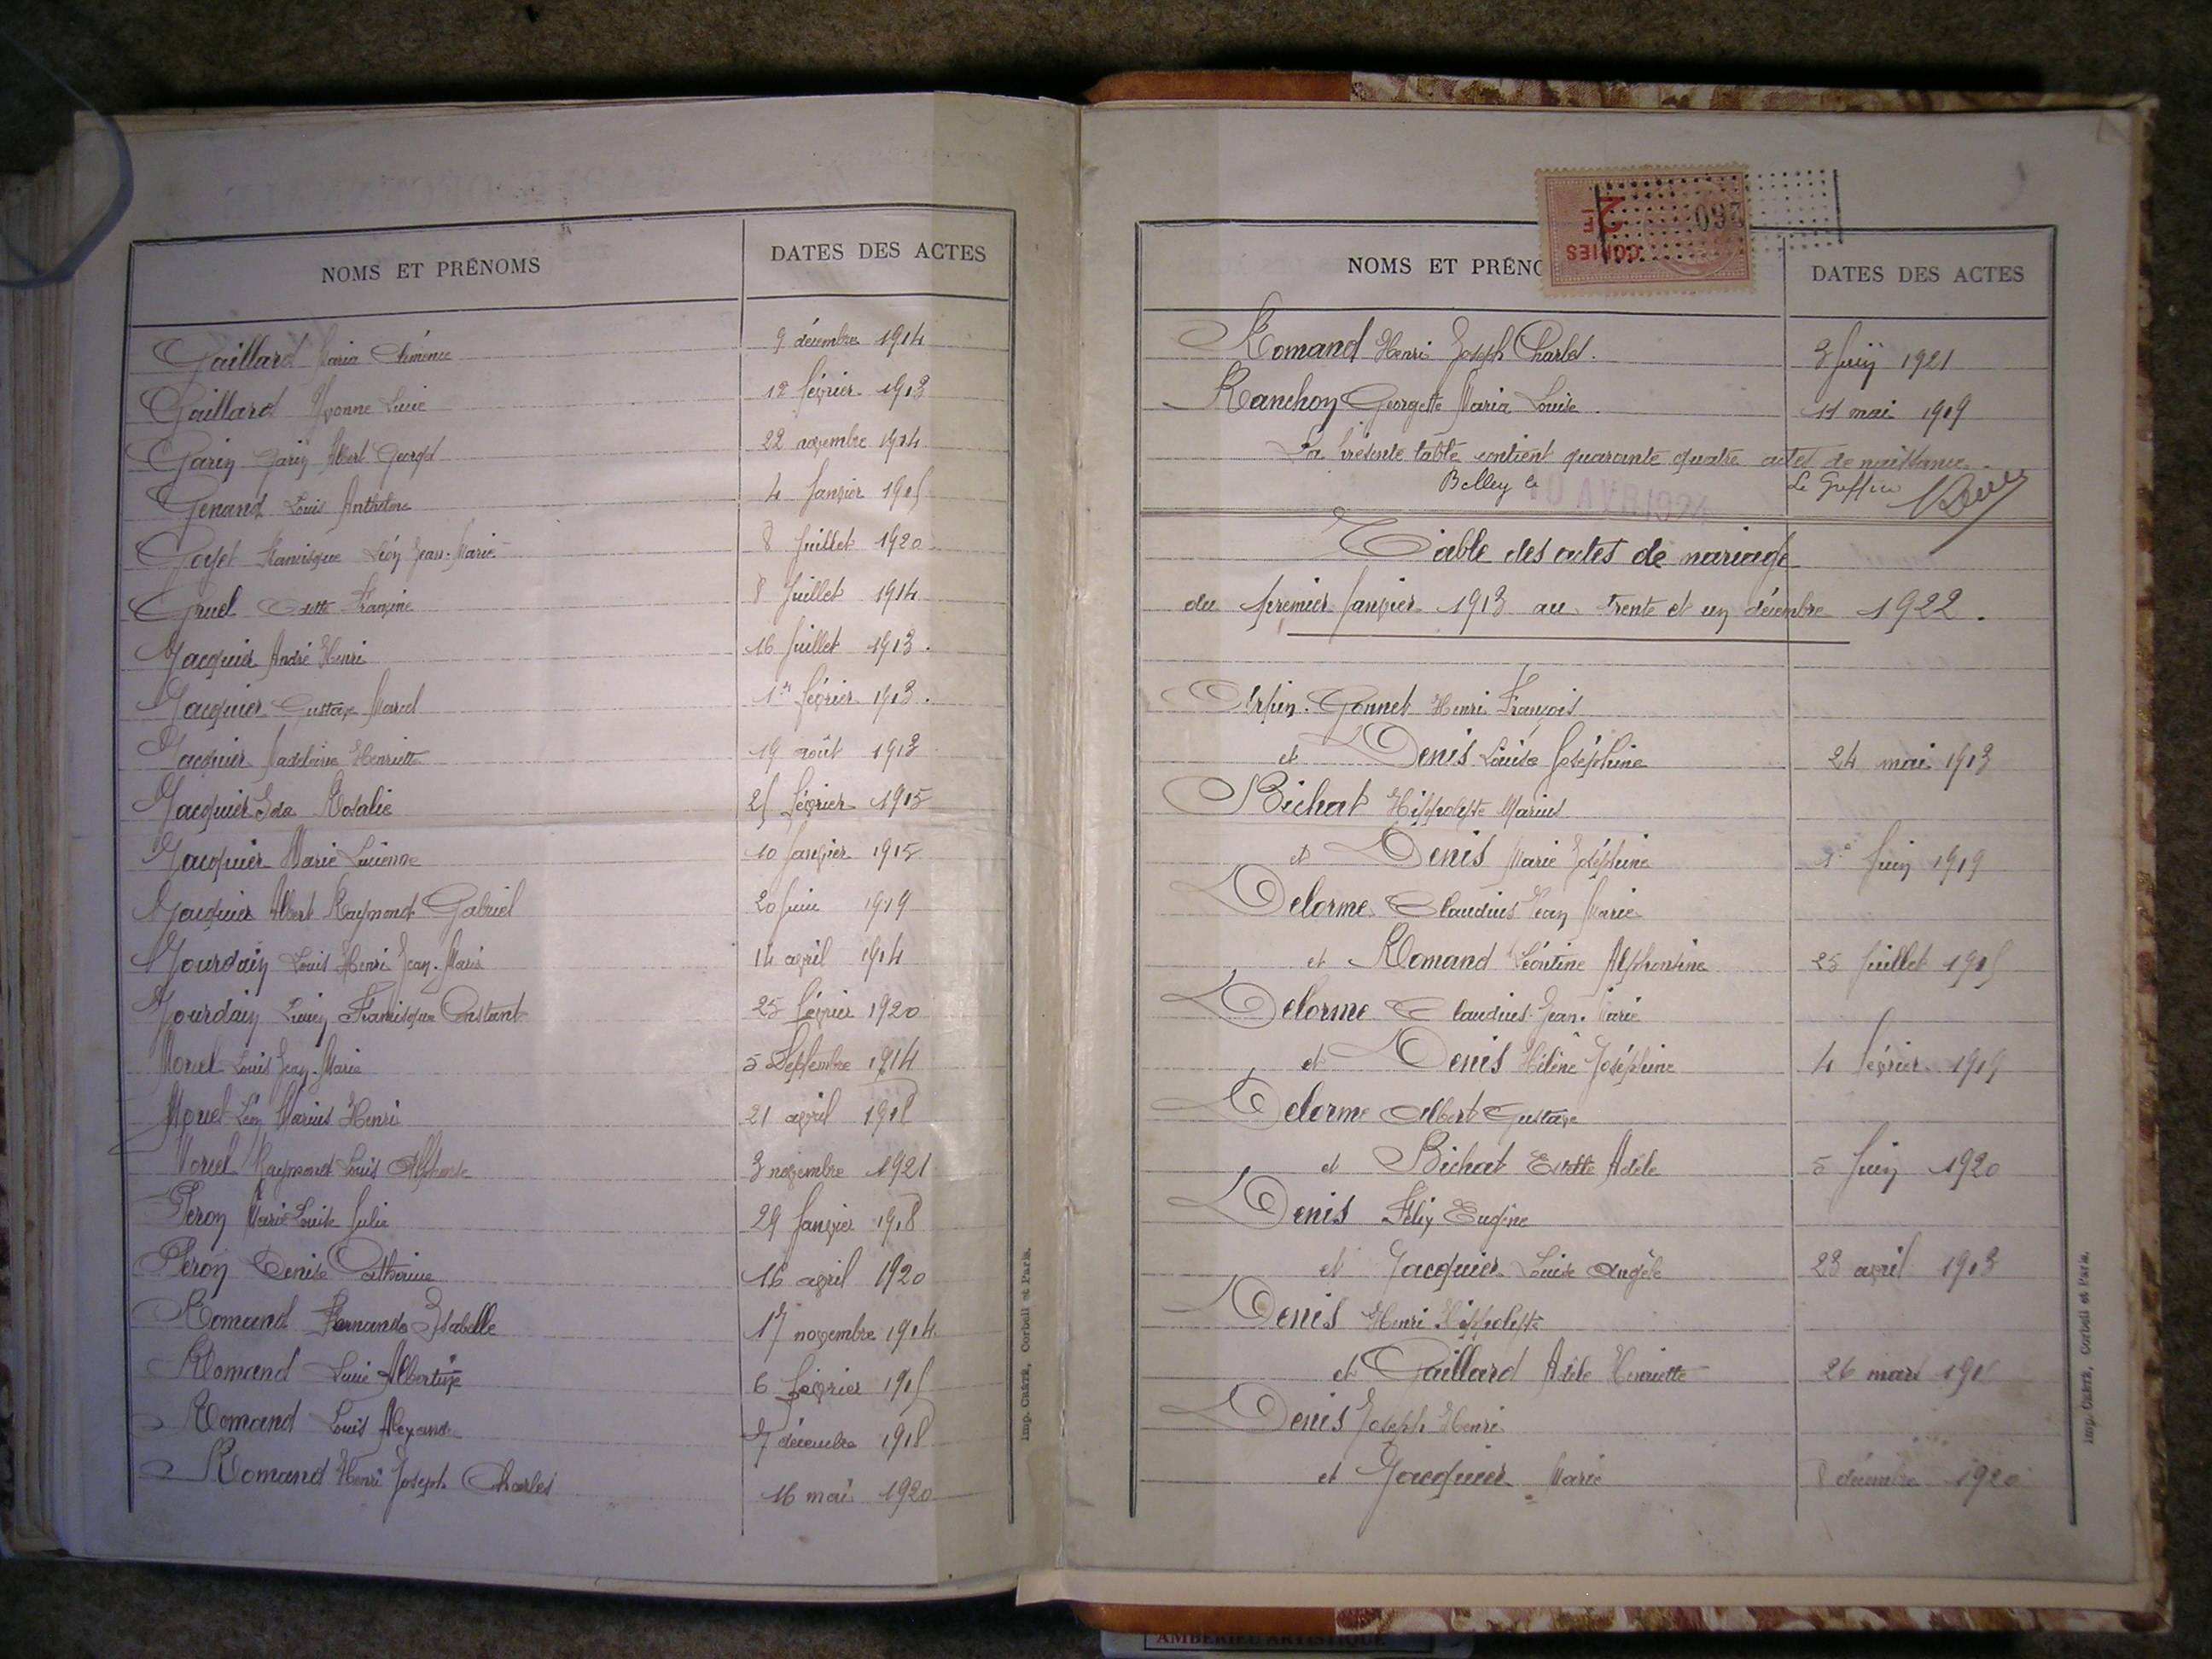 NOMS ET PRÉNOMS DATES DES ACTES
Gaillard Maria Clémence 9 décembre 1914
Gaillard Yvonne Lucie 12 février 1913
Garin Garin Albert Georges 22 novembre 1914
Genand Louis Anthelme 4 Janvier 1915
Goyet Francisque Léon Jean-Marie 8 Juillet 1920
Gruel Odette Francine 8 Juillet 1914
Jacquier André Henri 16 Juillet 1913.
Jacquier Gustave Marcel 1er février 1913.
Jacquier Madeleine Henriette 19 août 1913
Jacquier Ida Rosalie février 1915
Jacquier Marie Lucienne 10 Janvier 1915
Jacquier Albert Raymond Gabriel 20 Juin 1919
Jourdain Louis Henri Jean-Marie 14 avril 1914
Jourdain Lucien Francisque Constant 25 février 1920
Morel Louis Jean-Marie 5 Septembre 1914
Morel Léon Marius Henri 21 avril 1918
Morel Raymond Louis Alphonse 3 novembre 1921
Peron Marie Louise Julie 29 Janvier 1918
Peron Denise Catherine 16 avril 1920
Romand Fernande Isabelle 17 novembre 1914
Romand Lucie Albertine 6 février 1915
Romand Louis Alexandre 7 décembre 1918
Romand Henri Joseph Charles 16 mai 1920
Imp. Crété, Corbeil et Paris.
COPIES
2F
260
NOMS ET PRÉNO DATES DES ACTES
Romand Henri Joseph Charles. 3 Juin 1921
Ranchon Georgette Maria Louise. 11 mai 1919
La présente table contient quarante quatre actes de naissance.
Belley le 10 AVR 1924 Le Greffier
Table des actes de mariage
du premier Janvier 1913 au trente et un décembre 1922.
Arpin-Gonnet Henri François
et Denis Louise Joséphine 24 mai 1913
Bichat Hippolyte Marius
et Denis Marie Joséphine 1er Juin 1919
Delorme Claudius Jean Marie
et Romand Léontine Alphonsine 25 Juillet 1915
Delorme Claudius Jean-Marie
et Denis Hélène Joséphine 4 février 1919
Delorme Albert Gustave
et Bichat Estelle Adèle 5 Juin 1920
Denis Félix Eugène
et Jacquier Louise Angèle 23 avril 1913
Denis Henri Hippolyte
et Gaillard Adèle Henriette 26 mars
Denis Joseph Henri
et Jacquier Marie 8 décembre 1920
Imp. Crété, Corbeil et Paris.
AMBERIEU ARTISTIQUE